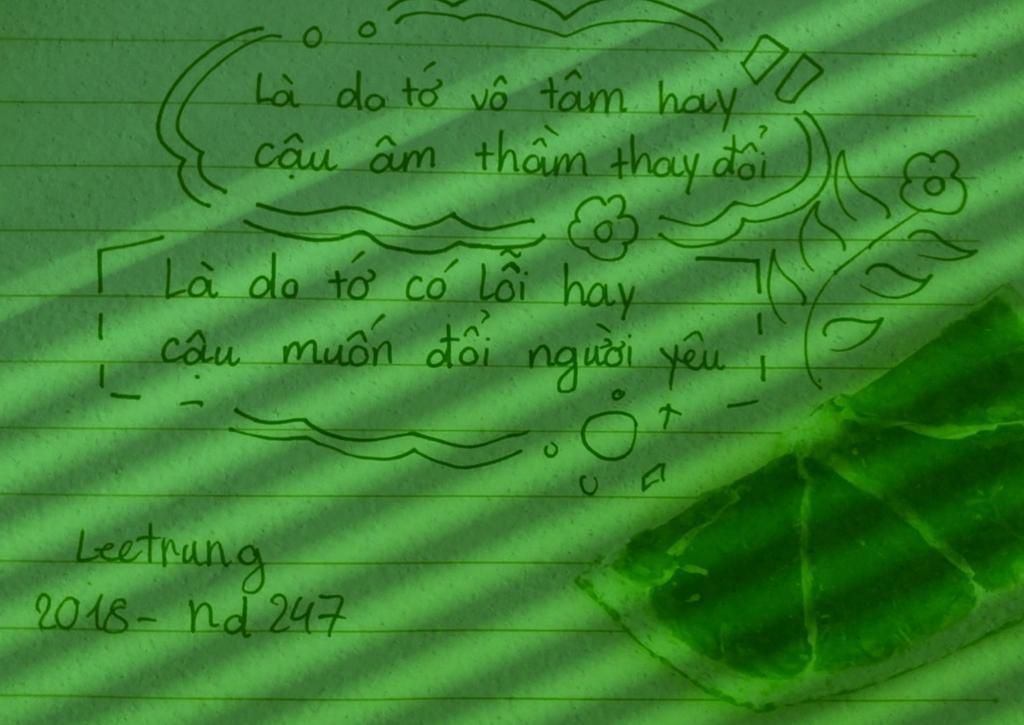 Là do tớ vô tâm hay
cậu âm thầm thay đổi
Là do tớ có lỗi hay
cậu muốn đổi người yêu
Leetrung
2018- nd 247